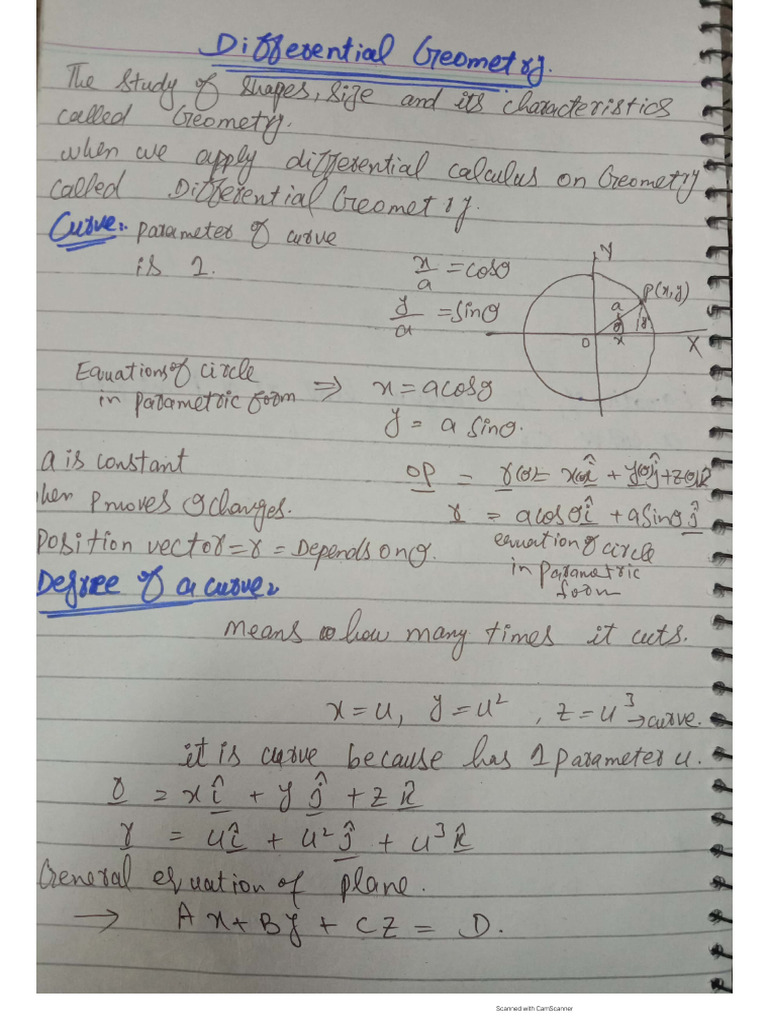 Differential Geometry.
The study of shapes, size and its characteristics
called Geometry.
when we apply differential calculus on Geometry
called Differential Geometry.
Curve: parameter of curve
is 1.
x/a = cosθ
y/a = sinθ
Y
P(x,y)
a
θ
y
O
x
X
Equations of circle
in parametric form ⇒ x = a cosθ
y = a sinθ.
a is constant
OP = r(θ) = x(θ)î + y(θ)ĵ + z(θ)k̂
when P moves θ changes.
r = a cosθ î + a sinθ ĵ
Position vector = r = Depends on θ.
equation of circle
in parametric
form
Degree of a curve:
means how many times it cuts.
x = u, y = u², z = u³ → curve.
it is curve because has 1 parameter u.
r = x î + y ĵ + z k̂
r = u î + u² ĵ + u³ k̂
General equation of plane.
→ Ax + By + Cz = D.
Scanned with CamScanner